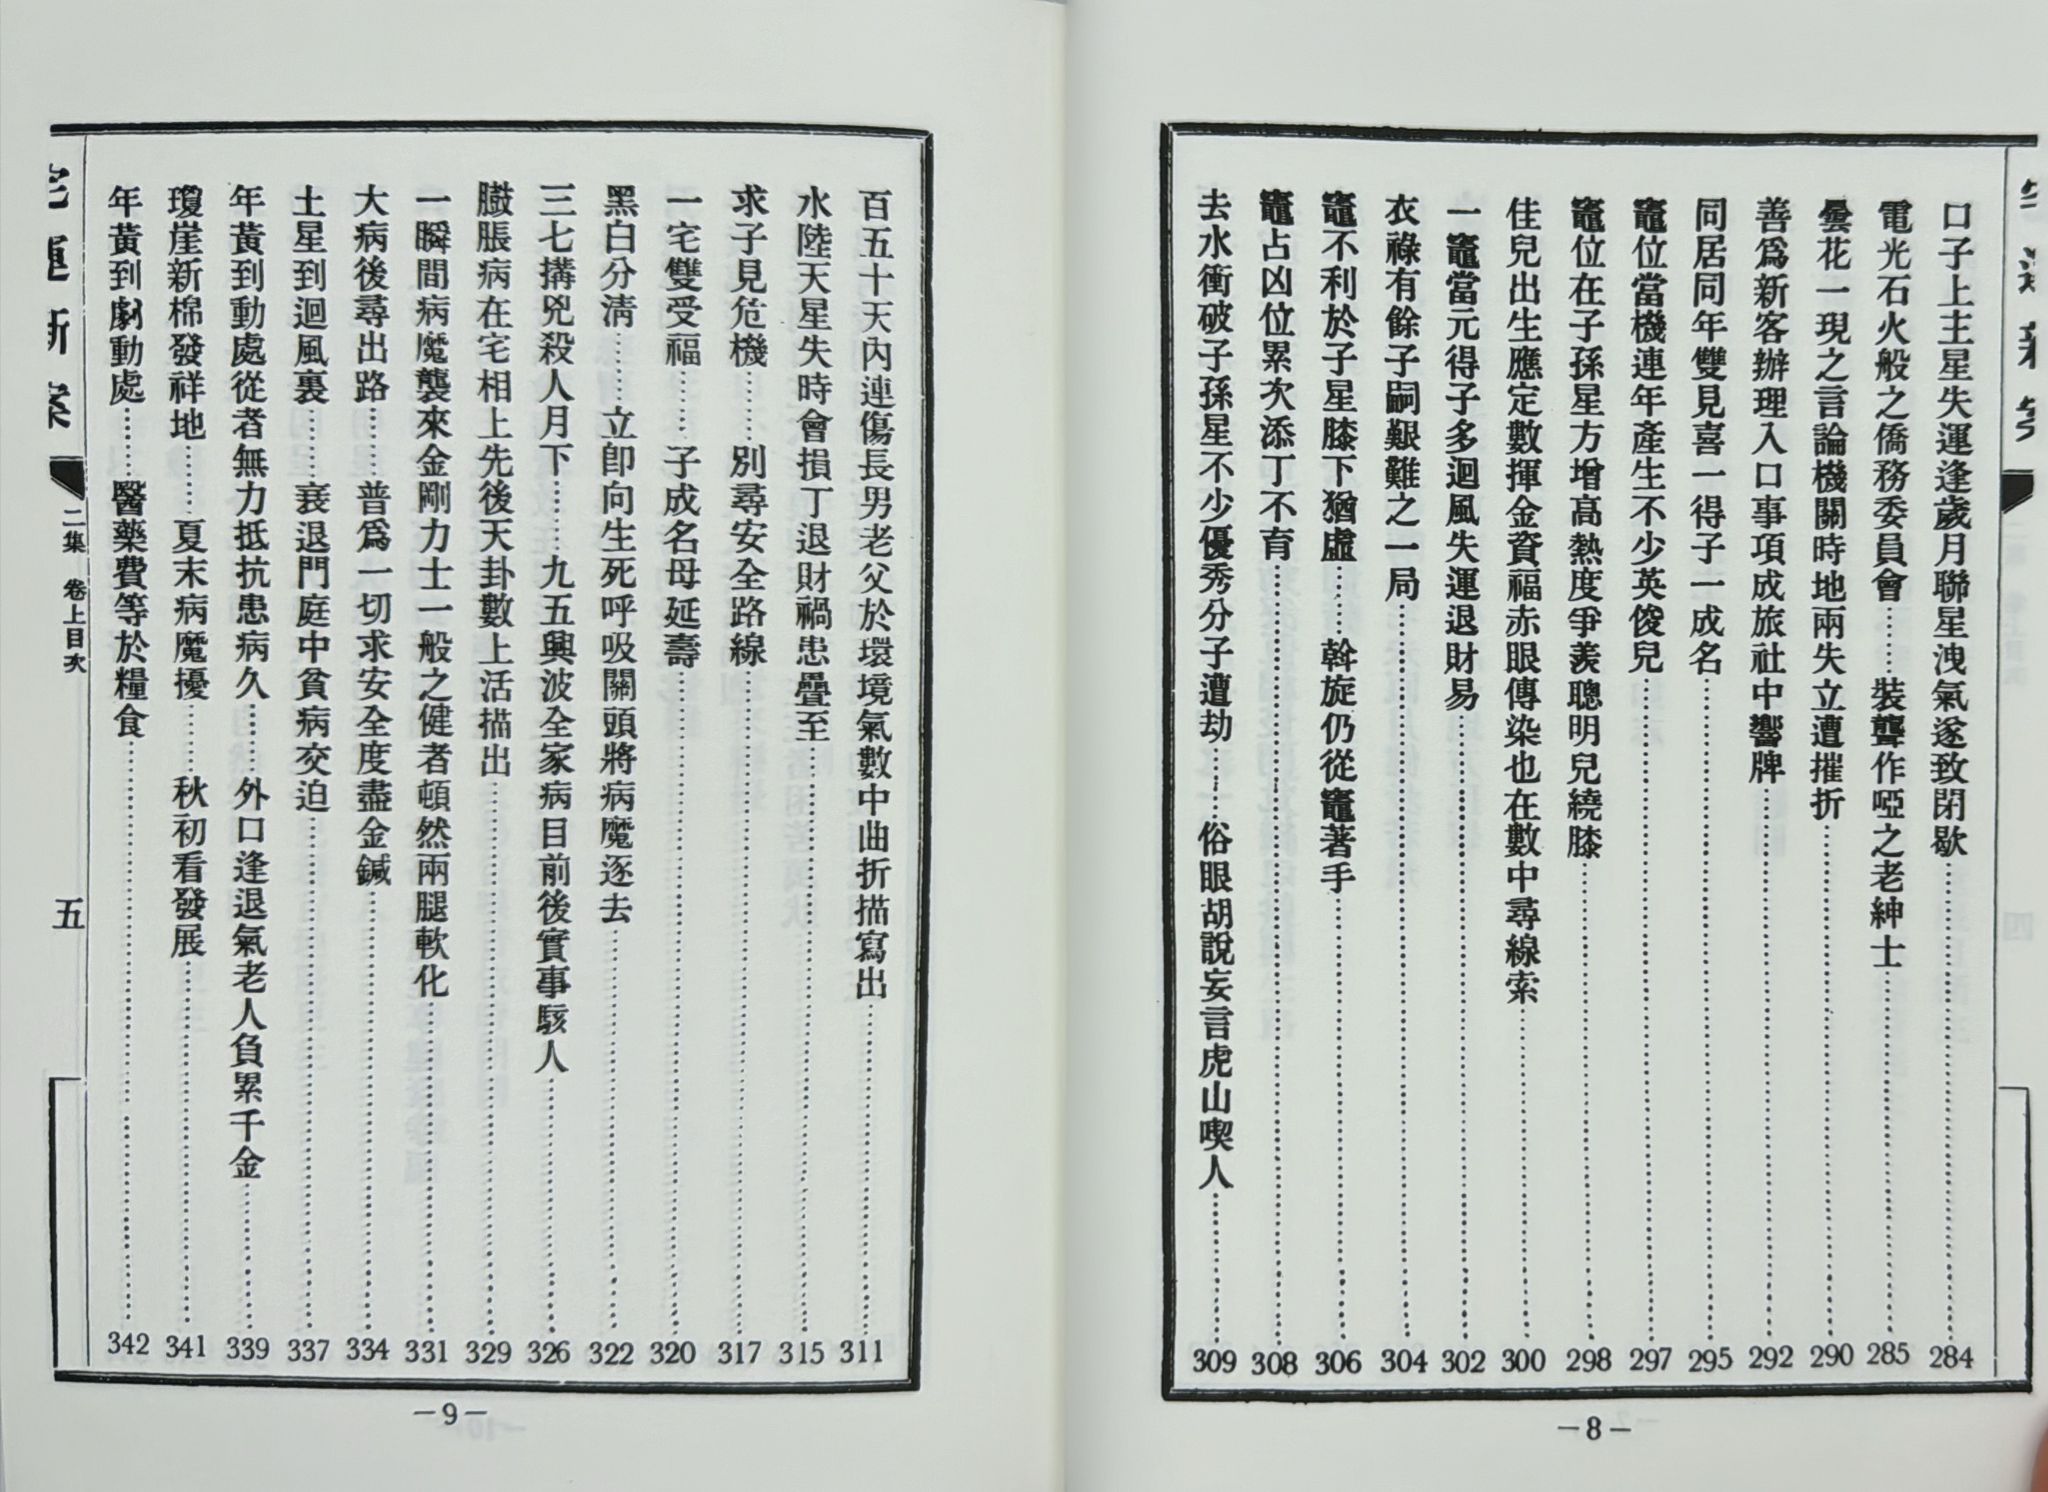 口子上主星失運逢歲月聯星洩氣遂致閉歇……284
電光石火般之僑務委員會……裝聾作啞之老紳士……285
曇花一現之言論機關時地兩失立遭摧折……290
善爲新客辦理入口事項成旅社中響牌……292
同居同年雙見喜一得子一成名……295
竈位當機連年產生不少英俊兒……297
竈位在子孫星方增高熱度爭羨聰明兒繞膝……298
佳兒出生應定數揮金資福赤眼傳染也在數中尋線索……300
一竈當元得子多迴風失運退財易……302
衣祿有餘子嗣艱難之一局……304
竈不利於子星膝下猶虛……斡旋仍從竈著手……306
竈占凶位累次添丁不育……308
去水衝破子孫星不少優秀分子遭劫……俗眼胡說妄言虎山喫人……309
—8—
百五十天內連傷長男老父於環境氣數中曲折描寫出……311
水陸天星失時會損丁退財禍患疊至……315
求子見危機……別尋安全路線……317
一宅雙受福……子成名母延壽……320
黑白分清……立卽向生死呼吸關頭將病魔逐去……322
三七搆兇殺人月下……九五興波全家病目前後實事駭人……326
臌脹病在宅相上先後天卦數上活描出……329
一瞬間病魔襲來金剛力士一般之健者頓然兩腿軟化……331
大病後尋出路……普爲一切求安全度盡金鍼……334
土星到迴風裏……衰退門庭中貧病交迫……337
年黃到動處從者無力抵抗患病久……外口逢退氣老人負累千金……339
瓊崖新棉發祥地……夏末病魔擾……秋初看發展……341
年黃到劇動處……醫藥費等於糧食……342
宅運新案
二集 卷上目次
五
—9—